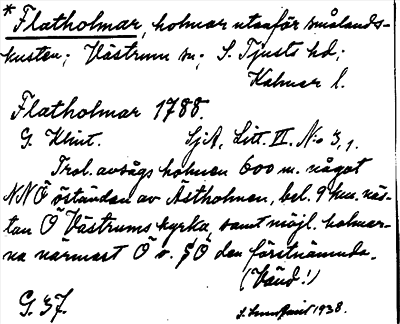 * Flatholmar, holmar utanför smålands-
kusten; Västrum sn; S. Tjusts hd;
Kalmar l.
Flatholmar 1788.
G. Klint. SjA, Litt. II. No 3,1.
Trol. avsågs holmen 600 m. något
NNÖ öständan av Ästholmen, bel. 9 km. näs-
tan Ö Västrums kyrka, samt möjl. holmar-
na närmast Ö o. SÖ den förstnämnda.
(Vänd!)
G. 37. 1938.